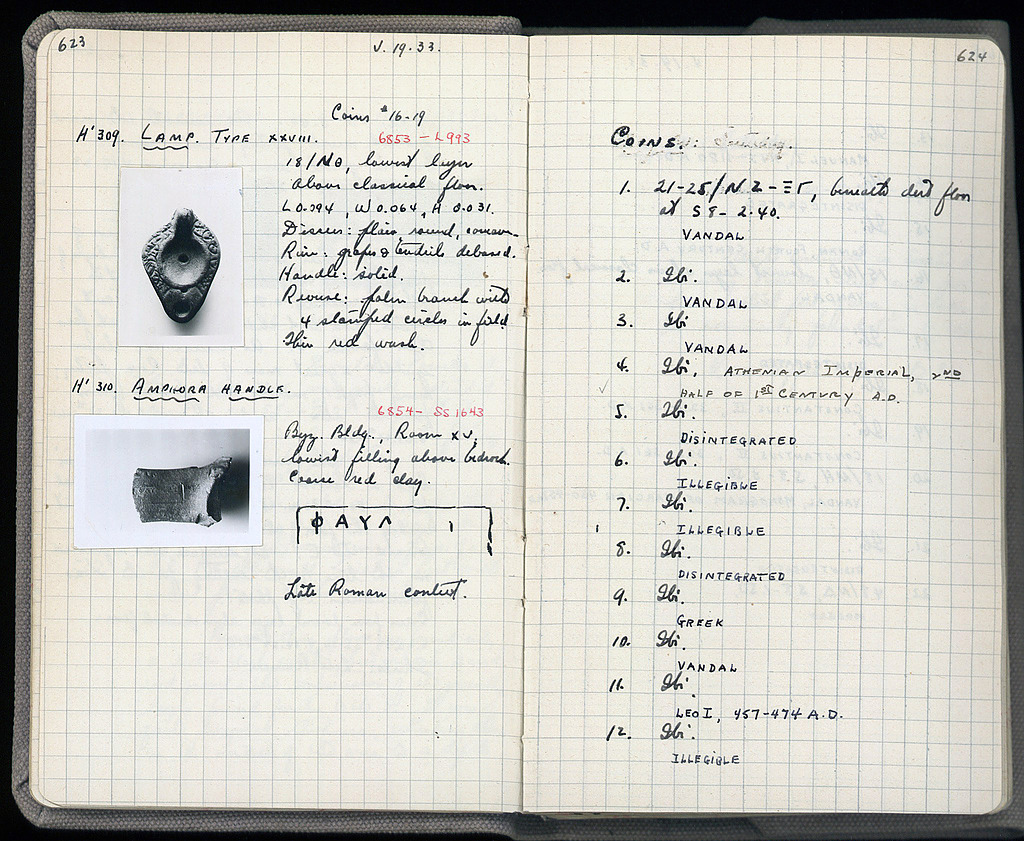 623
V. 19. 33.
Coins # 16-19
H' 309. LAMP. TYPE XXVIII.
6853 - L993
18/ΝΘ, lowest layer
above classical floor.
L 0.094, W 0.064, H 0.031.
Discus: plain round, concave
Rim: grapes & tendrils debased.
Handle: solid.
Reverse: palm branch with
4 stamped circles in field
Thin red wash.
H' 310. AMPHORA HANDLE.
6854 - SS 1643
Byz. Bldg., Room XV,
lowest filling above bedrock.
Coarse red clay.
ΦΑΥΛ
Late Roman context.
624
COINS.:
1. 21-25/N Z - Ξ Γ, beneath dirt floor
at 58 - 2.40.
VANDAL
2. Ibi.
VANDAL
3. Ibi
VANDAL
4. Ibi, ATHENIAN IMPERIAL, 2ND
HALF OF 1ST CENTURY A.D.
5. Ibi.
DISINTEGRATED
6. Ibi.
ILLEGIBLE
7. Ibi.
ILLEGIBLE
8. Ibi.
DISINTEGRATED
9. Ibi.
GREEK
10. Ibi.
VANDAL
11. Ibi.
LEO I, 457-474 A.D.
12. Ibi.
ILLEGIBLE